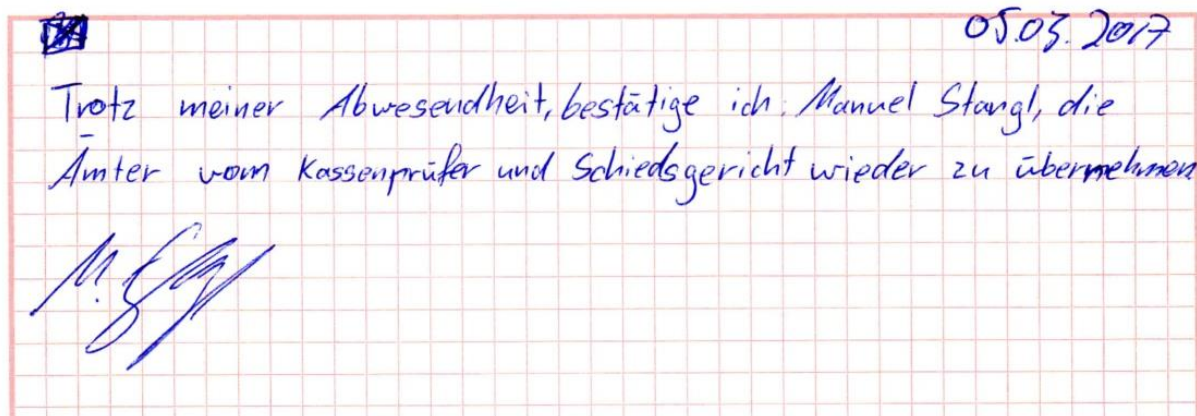 05.03.2017
Trotz meiner Abwesendheit, bestätige ich, Manuel Stangl, die
Ämter vom Kassenprüfer und Schiedsgericht wieder zu übernehmen